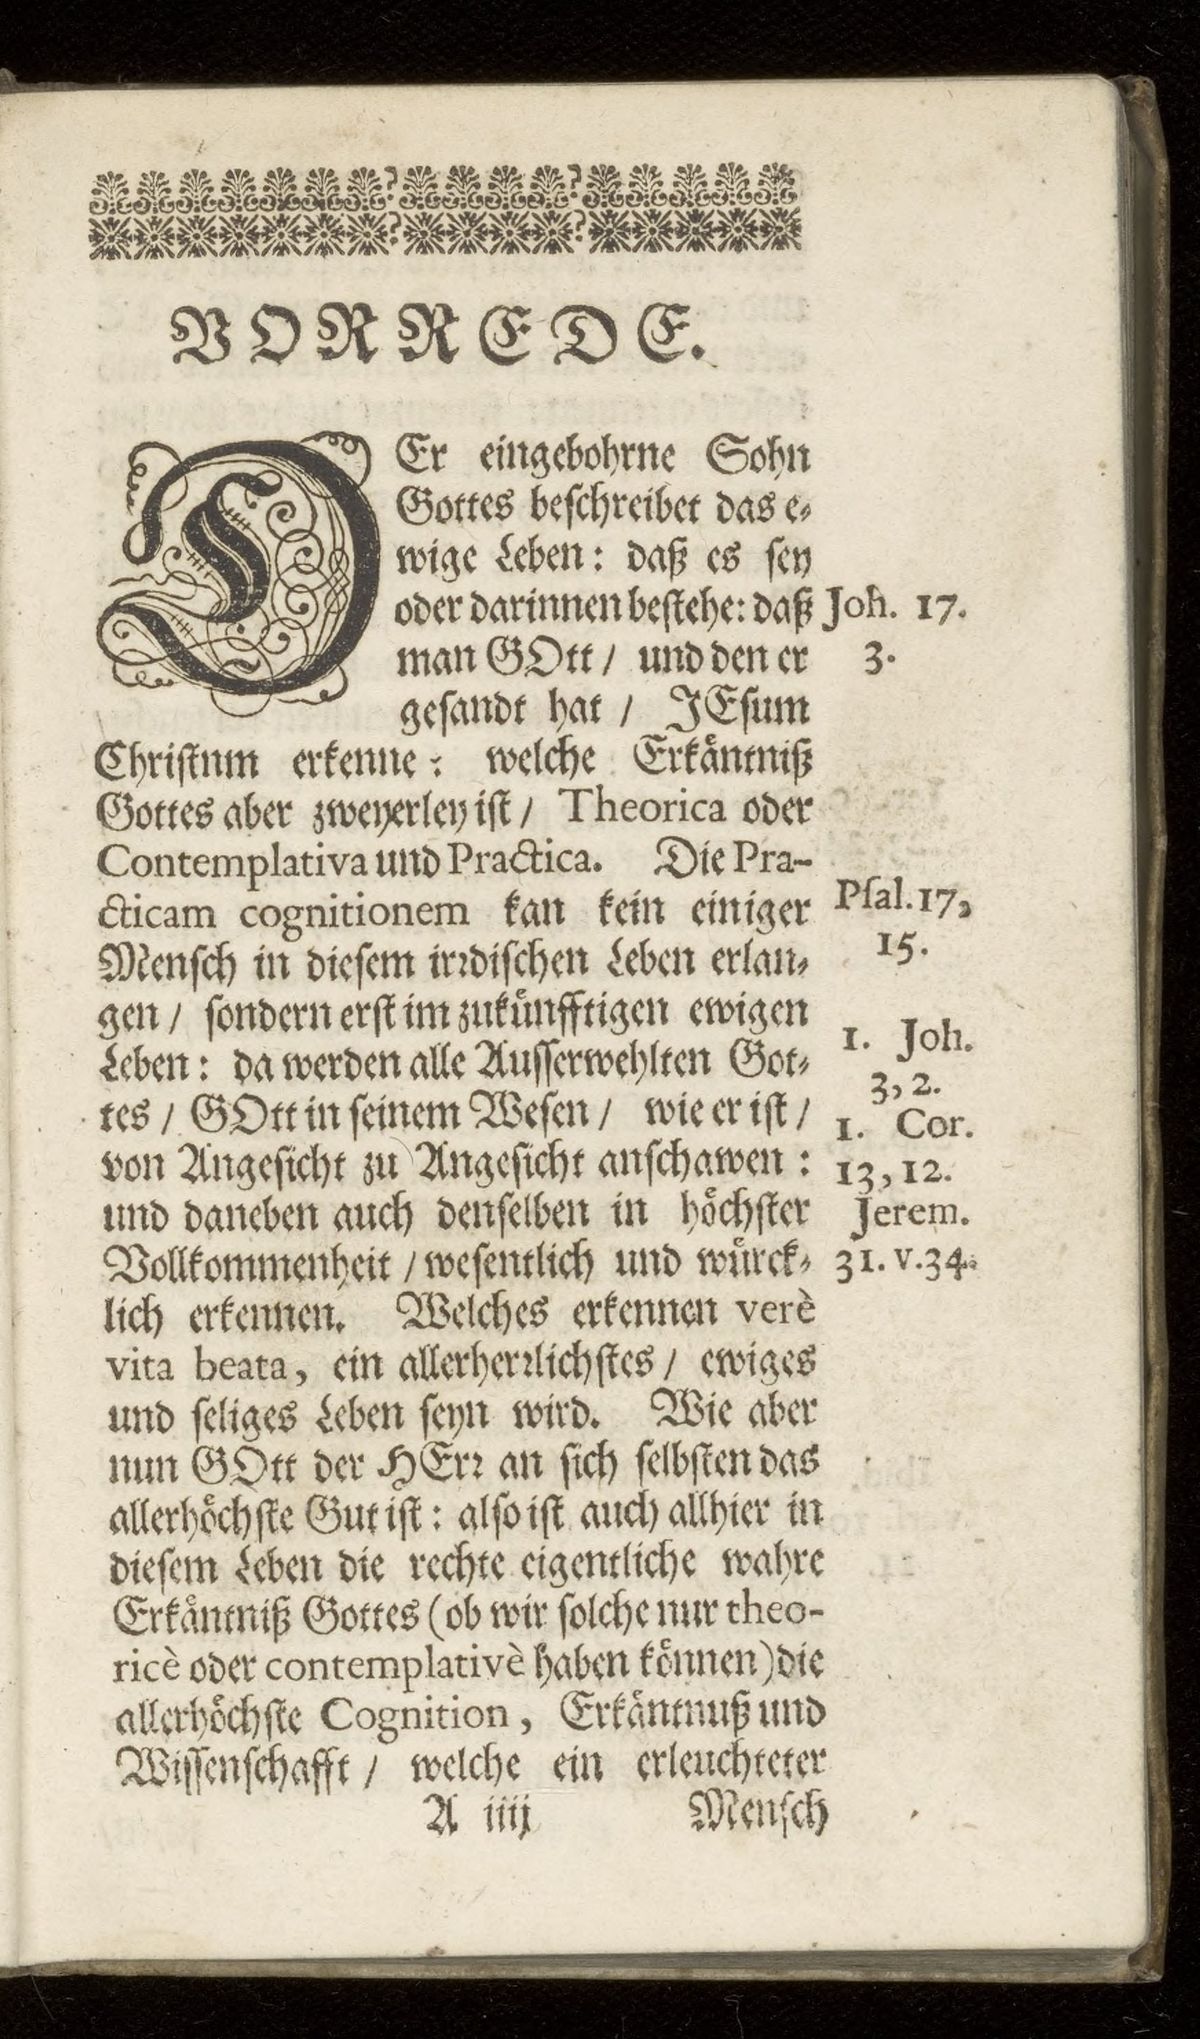 VORREDE.
DEr eingebohrne Sohn
Gottes beschreibet das e-
wige Leben: daß es sey
oder darinnen bestehe: daß
Joh. 17.
man GOtt / und den er
3.
gesandt hat / JEsum
Christum erkenne: welche Erkäntniß
Gottes aber zweyerley ist / Theorica oder
Contemplativa und Practica. Die Pra-
cticam cognitionem kan kein einiger
Psal. 17,
Mensch in diesem irrdischen Leben erlan-
15.
gen / sondern erst im zukünfftigen ewigen
1. Joh.
Leben: da werden alle Ausserwehlten Got-
3, 2.
tes / GOtt in seinem Wesen / wie er ist /
1. Cor.
von Angesicht zu Angesicht anschawen:
13, 12.
und daneben auch denselben in höchster
Jerem.
Vollkommenheit / wesentlich und würck-
31. v. 34.
lich erkennen. Welches erkennen verè
vita beata, ein allerherrlichstes / ewiges
und seliges Leben seyn wird. Wie aber
nun GOtt der HErr an sich selbsten das
allerhöchste Gut ist: also ist auch allhier in
diesem Leben die rechte eigentliche wahre
Erkäntniß Gottes (ob wir solche nur theo-
ricè oder contemplativè haben können) die
allerhöchste Cognition, Erkäntnuß und
Wissenschafft / welche ein erleuchteter
A iiij Mensch